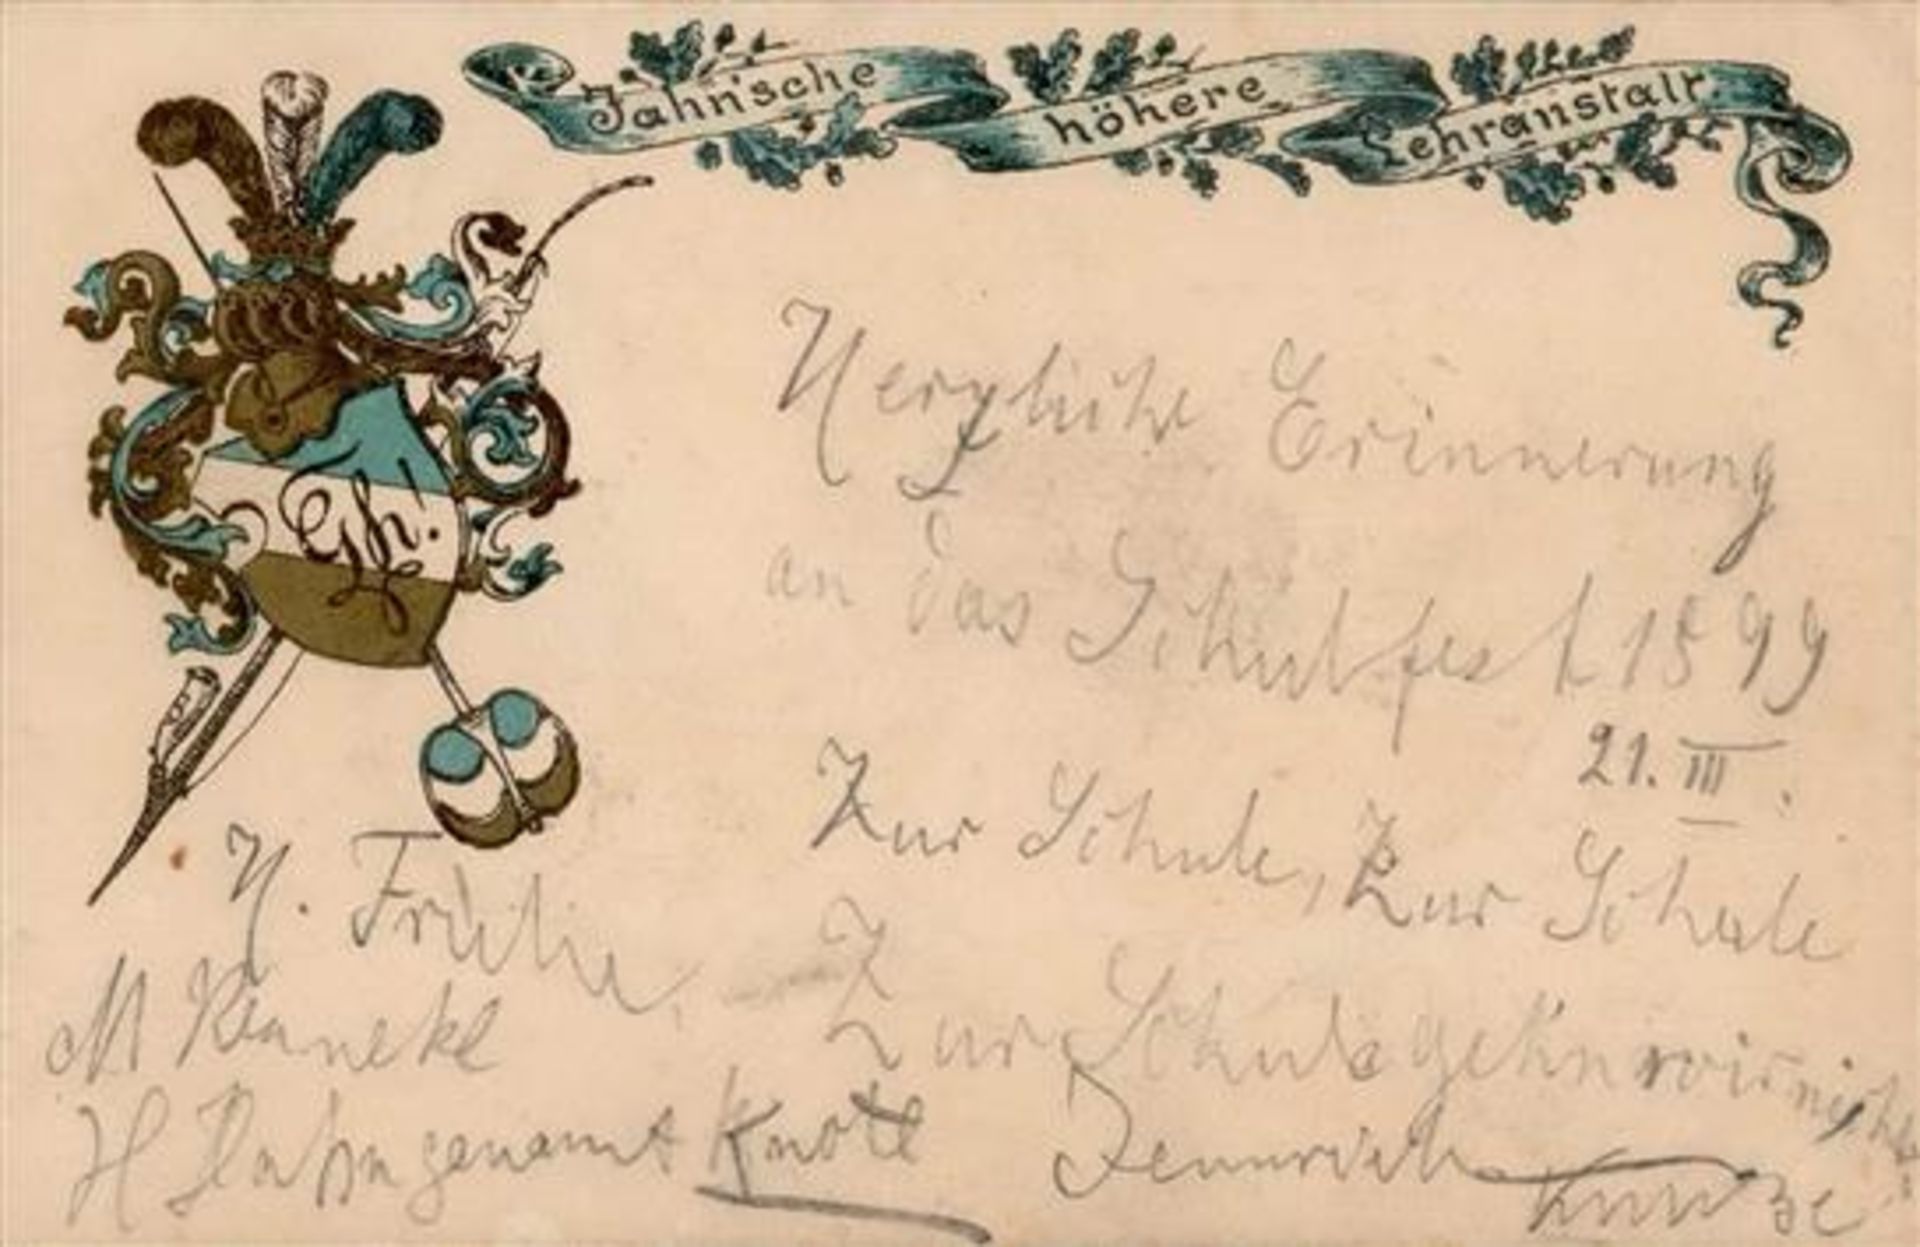 Jahn'sche höhere Lehranstalt.
Herzliche Erinnerung
an das Schulfest 1899
21. III.
Zur Schule, zur Schule
Zur Schule gehn wir nicht
H. Frühe
H Hahn genannt Knote
Kunze